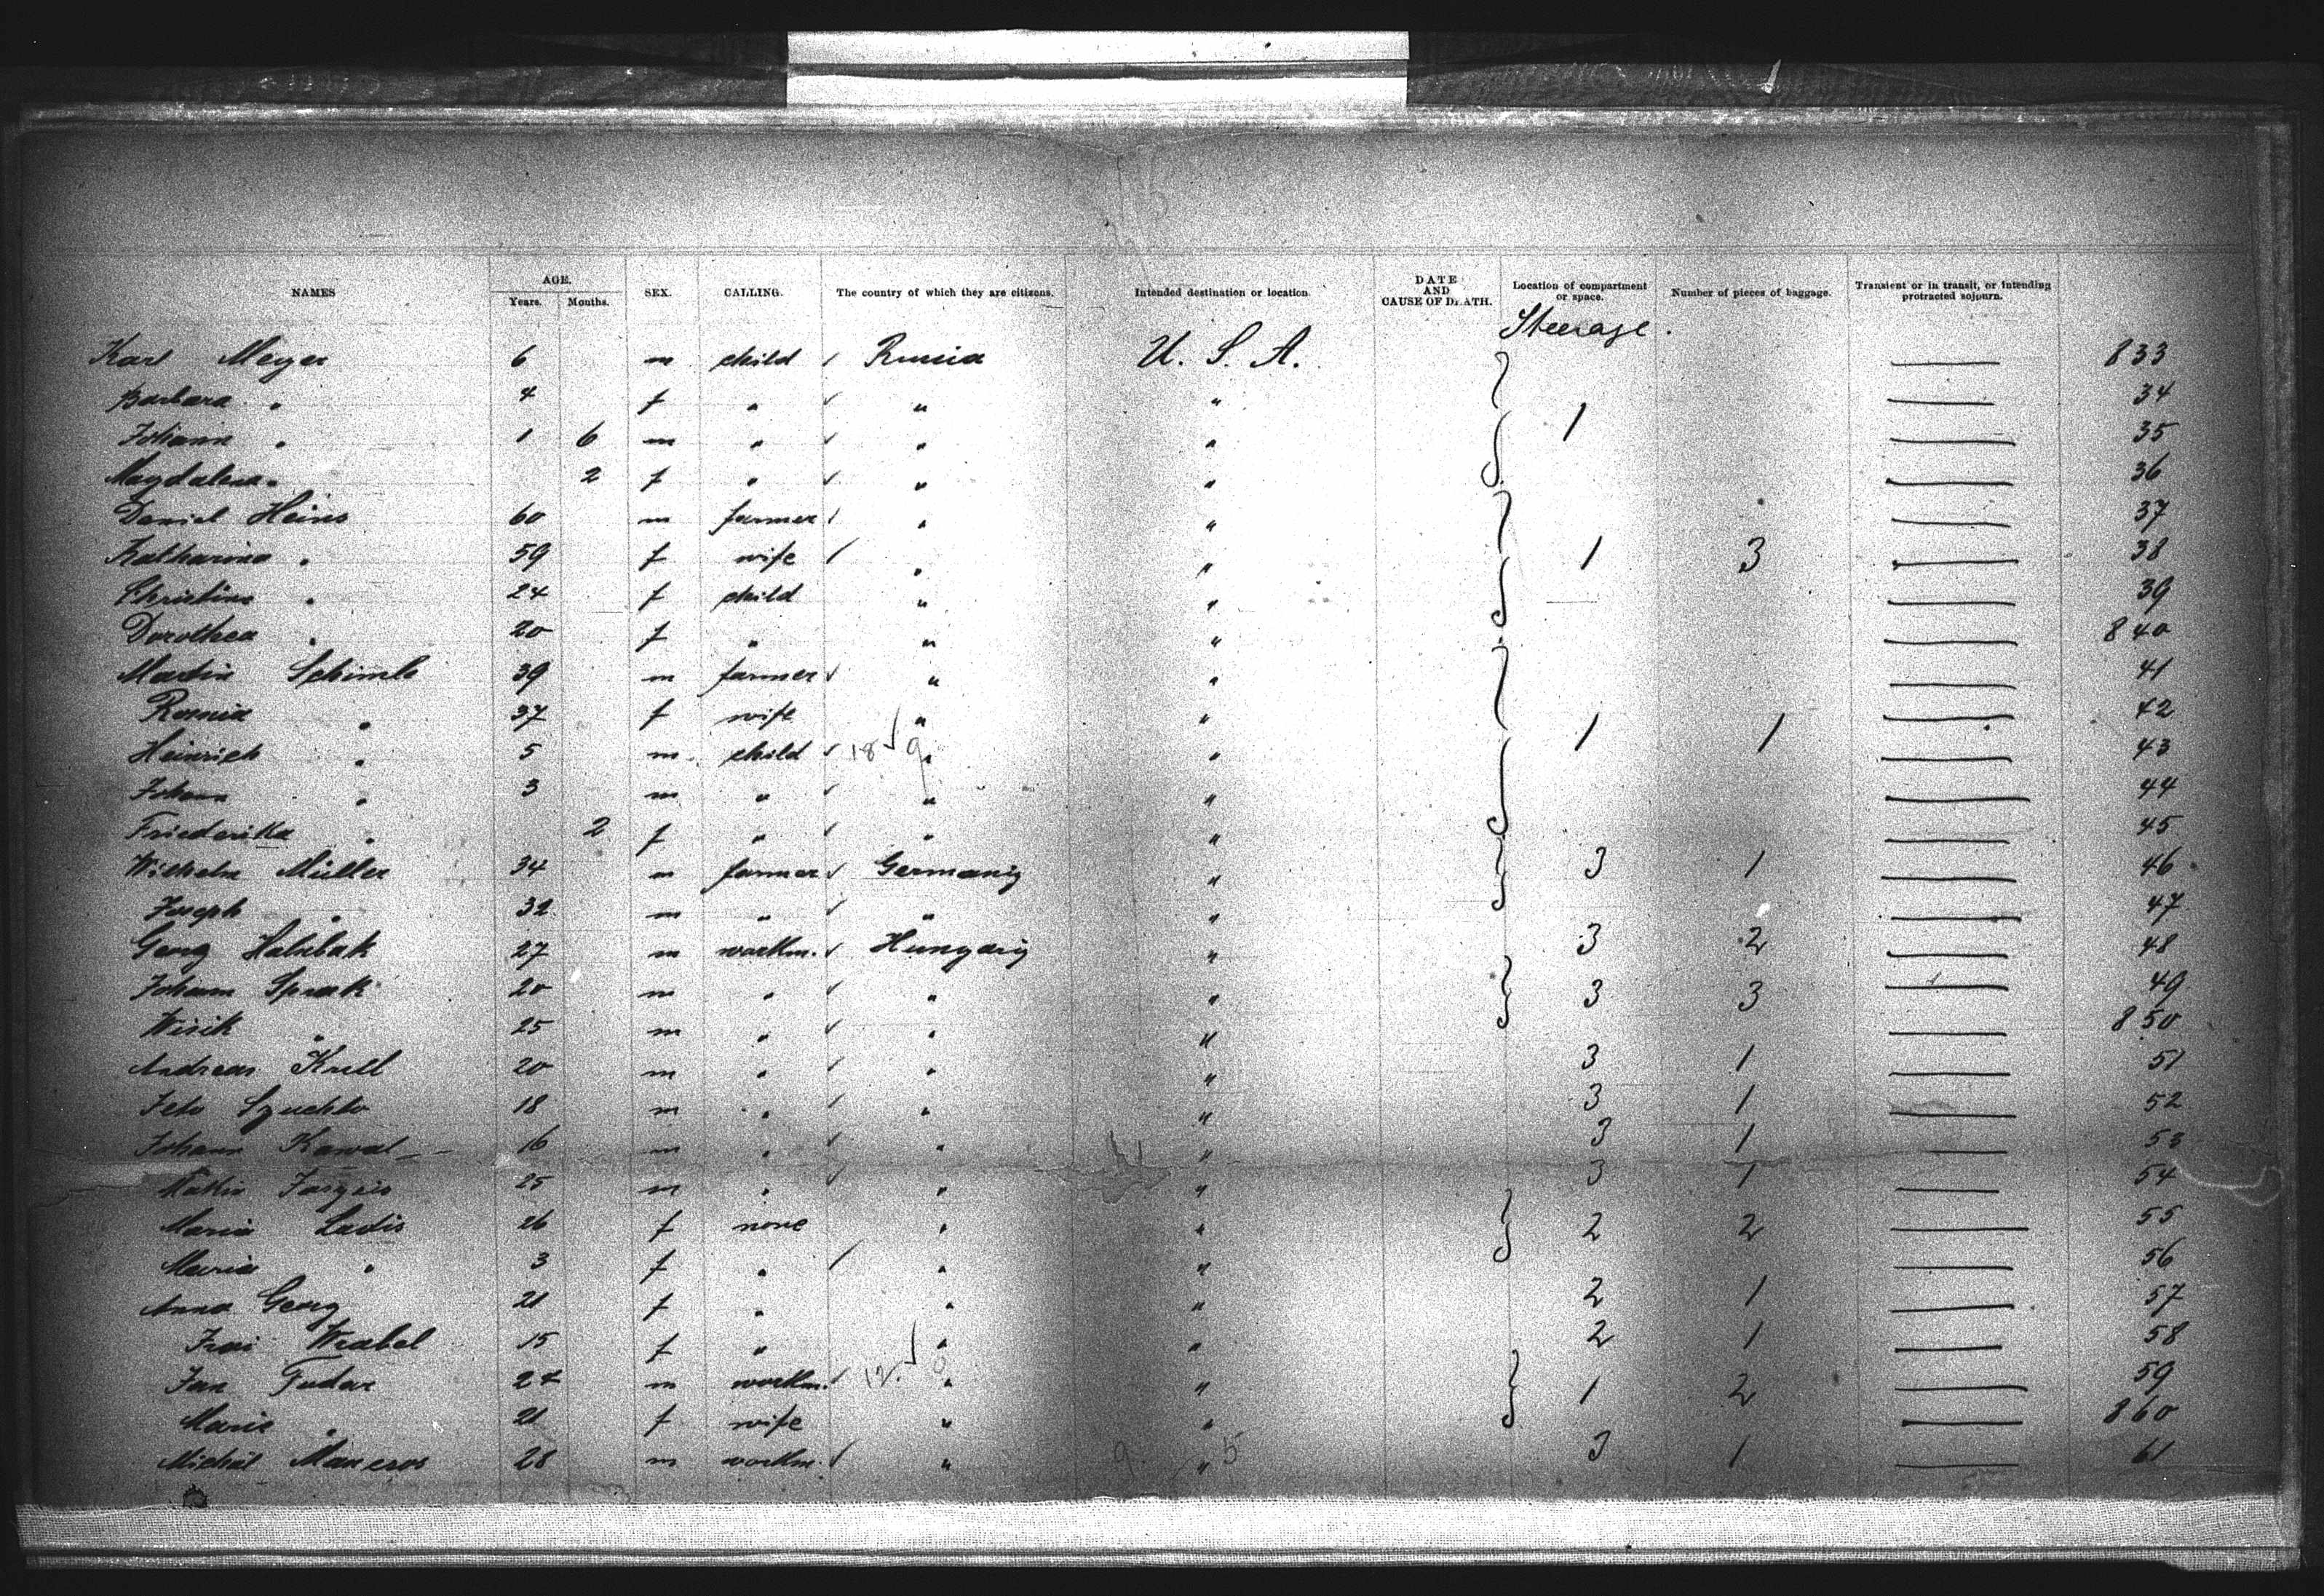 NAMES AGE. Years. Months. SEX. CALLING. The country of which they are citizens. Intended destination or location. DATE AND CAUSE OF DEATH. Location of compartment or space. Number of pieces of baggage. Transient or in transit, or intending protracted sojourn.
Steerage.
Karl Meyer 6 m child Russia U. S. A. 833
Barbara " 4 f " " " 34
Johann " 1 6 m " " " 1 35
Magdalena " 2 f " " " 36
Daniel Heins 60 m farmer " " 37
Katharina " 59 f wife " " 1 3 38
Christina " 24 f child " " 39
Dorothea " 20 f " " " 840
Martin 39 m farmer " " 41
" 37 f wife " " 42
Heinrich " 5 m child 18 9 " " 1 1 43
Johann " 3 m " " " 44
Friederika " 2 f " " " 45
Wilhelm Müller 34 m farmer Germany " 3 1 46
Joseph " 32 m " " " 47
Georg 27 m workm. Hungary " 3 2 48
Johann 20 m " " " 3 3 49
" 25 m " " " 850
Andreas Krull 20 m " " " 3 1 51
18 m " " " 3 1 52
Johann Kowal 16 m " " " 3 1 53
25 m " " " 3 1 54
Maria Ladis 26 f none " " 2 2 55
Maria " 3 f " " " 56
Anna Georg 21 f " " " 2 1 57
Wrabel 15 f " " " 2 1 58
Jan Tudar 24 m workm. 12. " " 1 2 59
Marie " 21 f wife " " 860
28 m workm. " 9 " 5 3 1 61